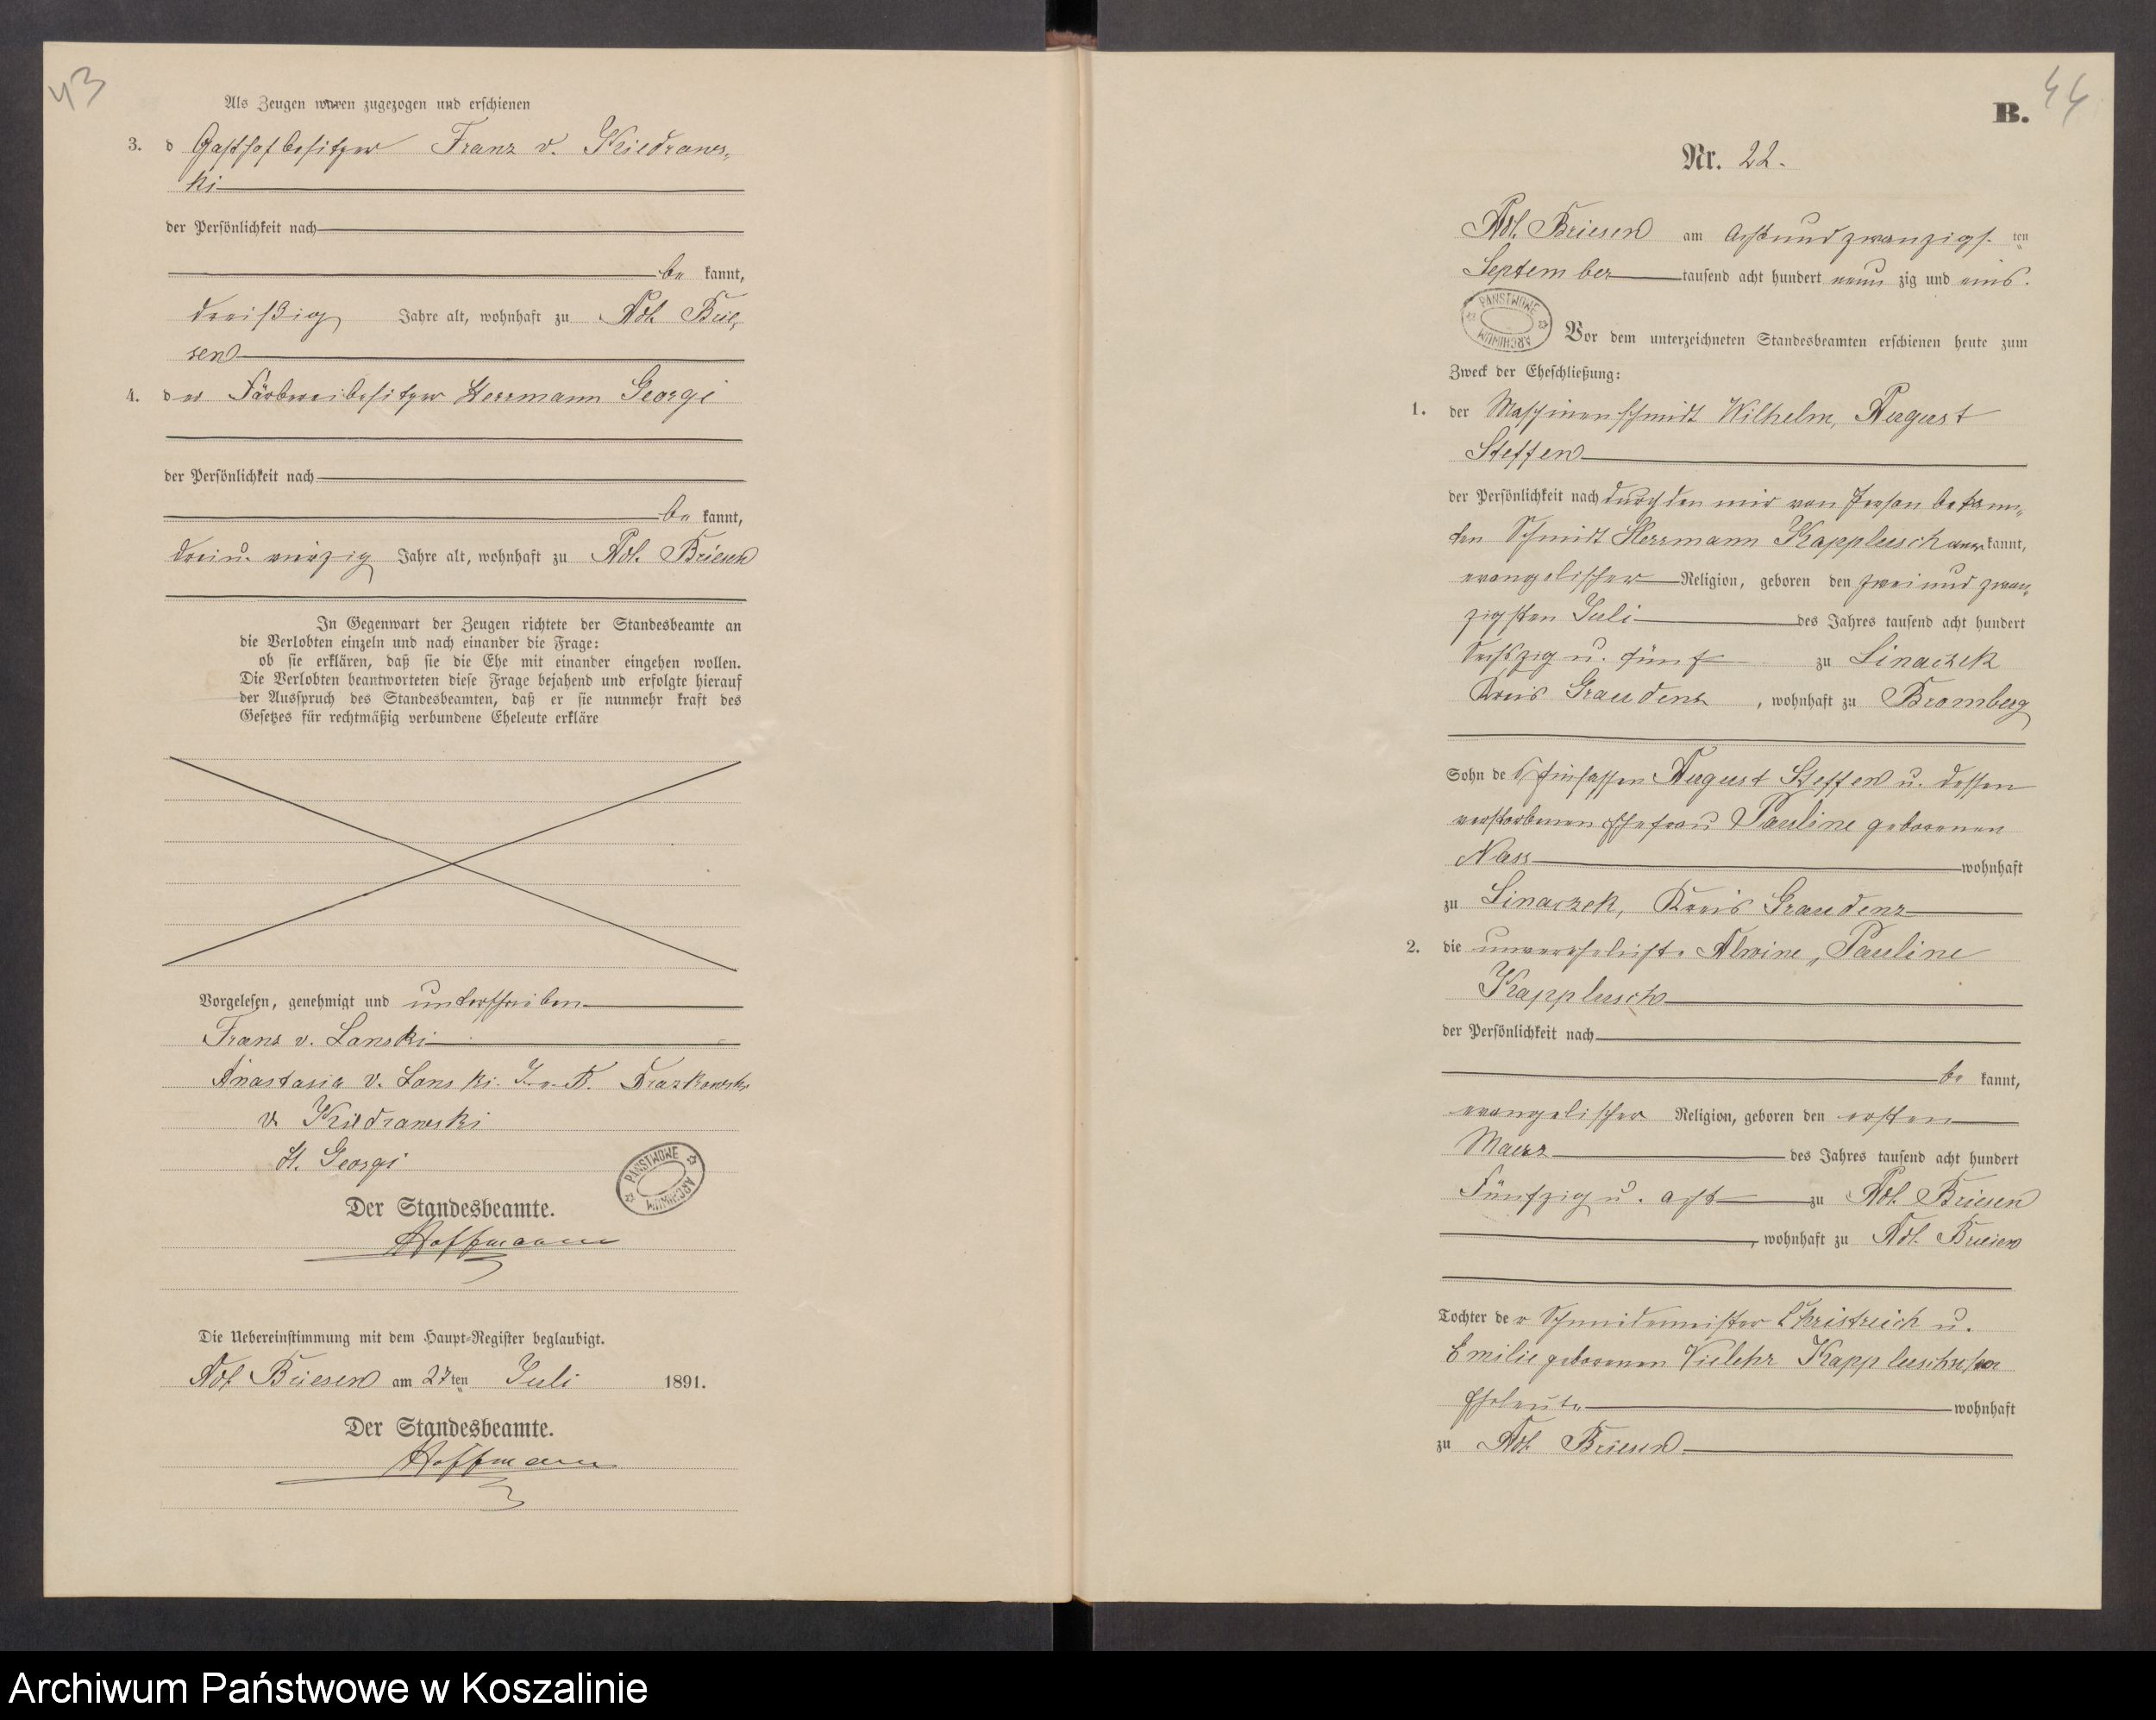 43
Als Zeugen waren zugezogen und erschienen
3. d Gasthofbesitzer Franz v. Kiedrows-
ki
der Persönlichkeit nach
be kannt,
dreißig Jahre alt, wohnhaft zu Adl. Brie-
sen
4. der Färbereibesitzer Herrmann Georgi
der Persönlichkeit nach
be kannt,
dreiu. vierzig Jahre alt, wohnhaft zu Adl. Briesen
In Gegenwart der Zeugen richtete der Standesbeamte an
die Verlobten einzeln und nach einander die Frage:
ob sie erklären, daß sie die Ehe mit einander eingehen wollen.
Die Verlobten beantworteten diese Frage bejahend und erfolgte hierauf
der Ausspruch des Standesbeamten, daß er sie nunmehr kraft des
Gesetzes für rechtmäßig verbundene Eheleute erkläre
Vorgelesen, genehmigt und unterschrieben
Franz v. Lanski
Anastasia v. Lanski
v. Kiedrowski
H. Georgi
PAŃSTWOWE ARCHIWUM
Der Standesbeamte.
Hoffmann
Die Uebereinstimmung mit dem Haupt-Register beglaubigt.
Adl Briesen am 27ten Juli 1891.
Der Standesbeamte.
Hoffmann
44
B.
Nr. 22.
Adl. Briesen am achtundzwanzigs. ten
September tausend acht hundert neun zig und eins.
PAŃSTWOWE ARCHIWUM
Vor dem unterzeichneten Standesbeamten erschienen heute zum
Zweck der Eheschließung:
1. der Maschinenschmidt Wilhelm, August
Steffen
der Persönlichkeit nach durch den mir von Person bekann-
ten Schmidt Herrmann Kapplusch aner kannt,
evangelischer Religion, geboren den zwei und zwan-
zigsten Juli des Jahres tausend acht hundert
sechszig u. fünf zu Linaczek
Kreis Graudenz, wohnhaft zu Bromberg
Sohn des Einsassen August Steffen u. dessen
verstorbenen Ehefrau Pauline geborenen
Nass wohnhaft
zu Linaczek, Kreis Graudenz
2. die unverehelichte Alwine, Pauline
Kapplusch
der Persönlichkeit nach
be kannt,
evangelischer Religion, geboren den ersten
Maerz des Jahres tausend acht hundert
Fünfzig u. acht zu Adl. Briesen
, wohnhaft zu Adl. Briesen
Tochter der Schmidemeister Christreich u.
Emilie geborenen Vielehr Kappluschschen
Eheleute wohnhaft
zu Adl. Briesen.
Archiwum Państwowe w Koszalinie